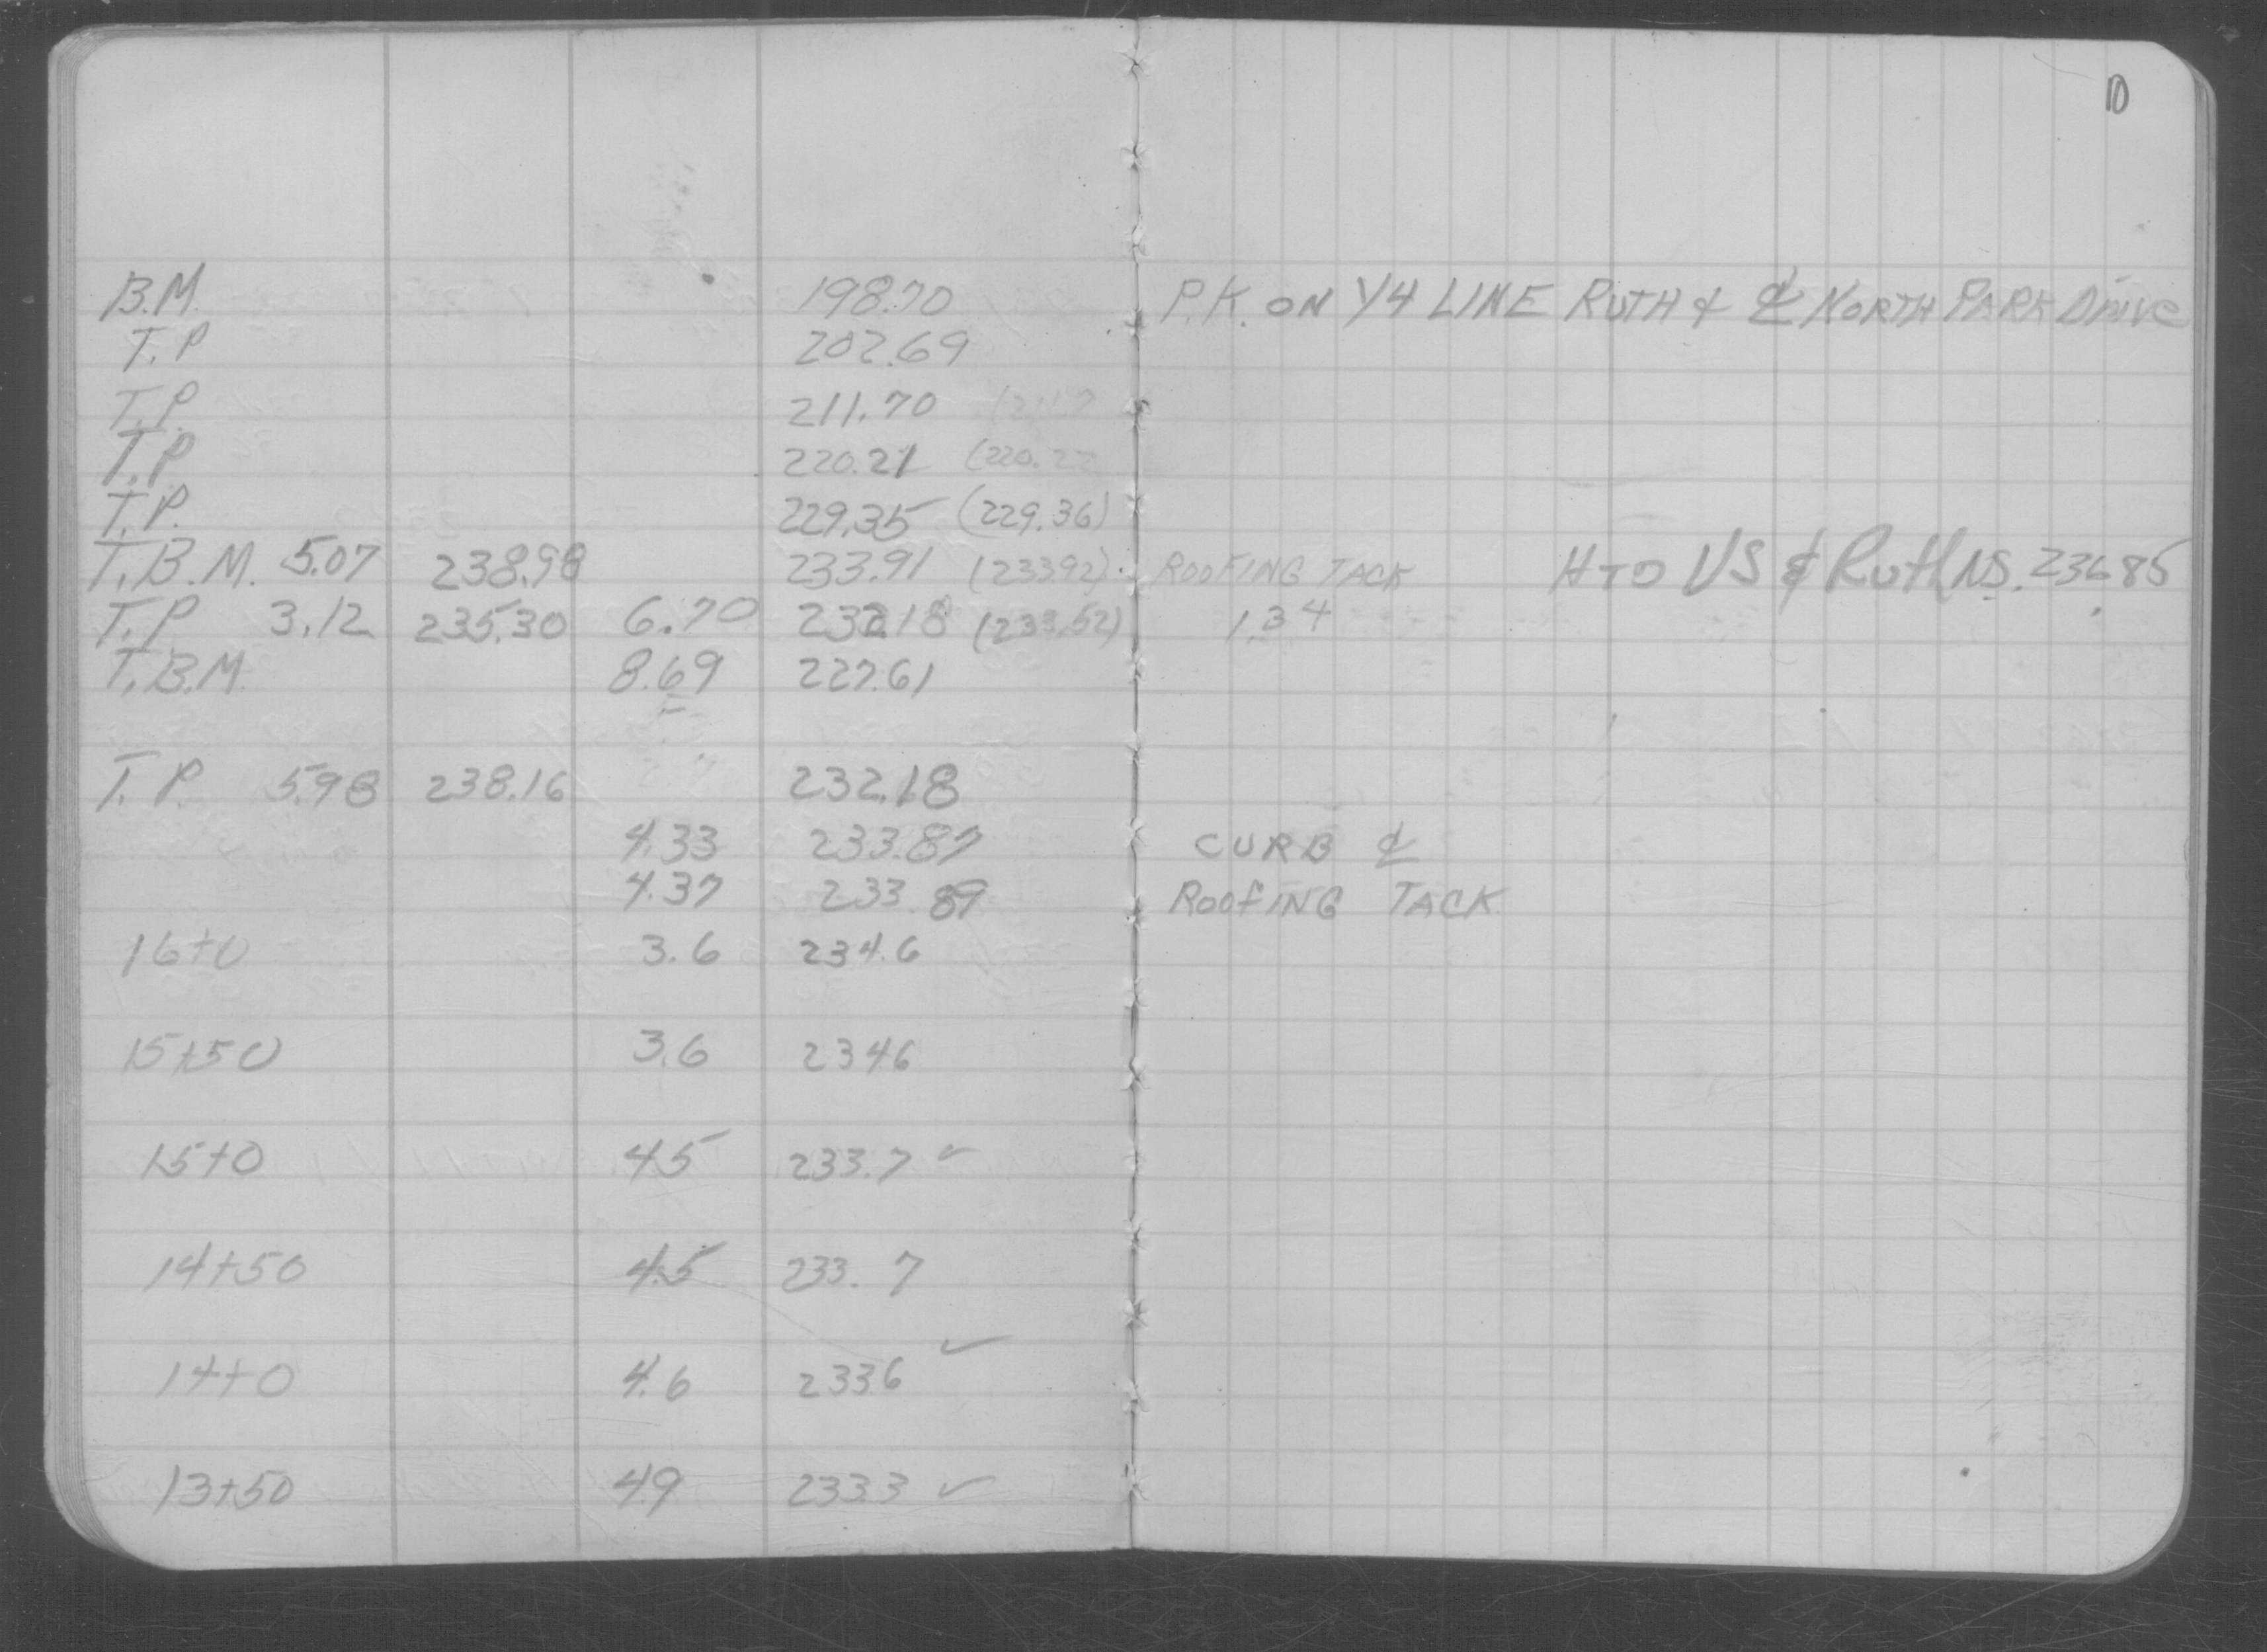 10
B.M. 198.70 P.K. ON 1/4 LINE RUTH & ℄ NORTH PARK DRIVE
T.P 202.69
T.P. 211.70
T.P 220.21 (220.22
T.P. 229.35 (229.36)
T.B.M. 5.07 238.98 233.91 (233.92) ROOFING TACK HTD VS & Ruth NS. 236.85
T.P 3.12 235.30 6.70 232.18 (233.52) 1.34
T.B.M. 8.69 227.61
T.P. 5.98 238.16 232.18
4.33 233.87 CURB ℄
4.37 233.89 ROOFING TACK
16+0 3.6 234.6
15+50 3.6 234 6
15+0 4.5 233.7 ✓
14+50 4.5 233.7
14+0 4.6 233 6 ✓
13+50 4.9 233.3 ✓